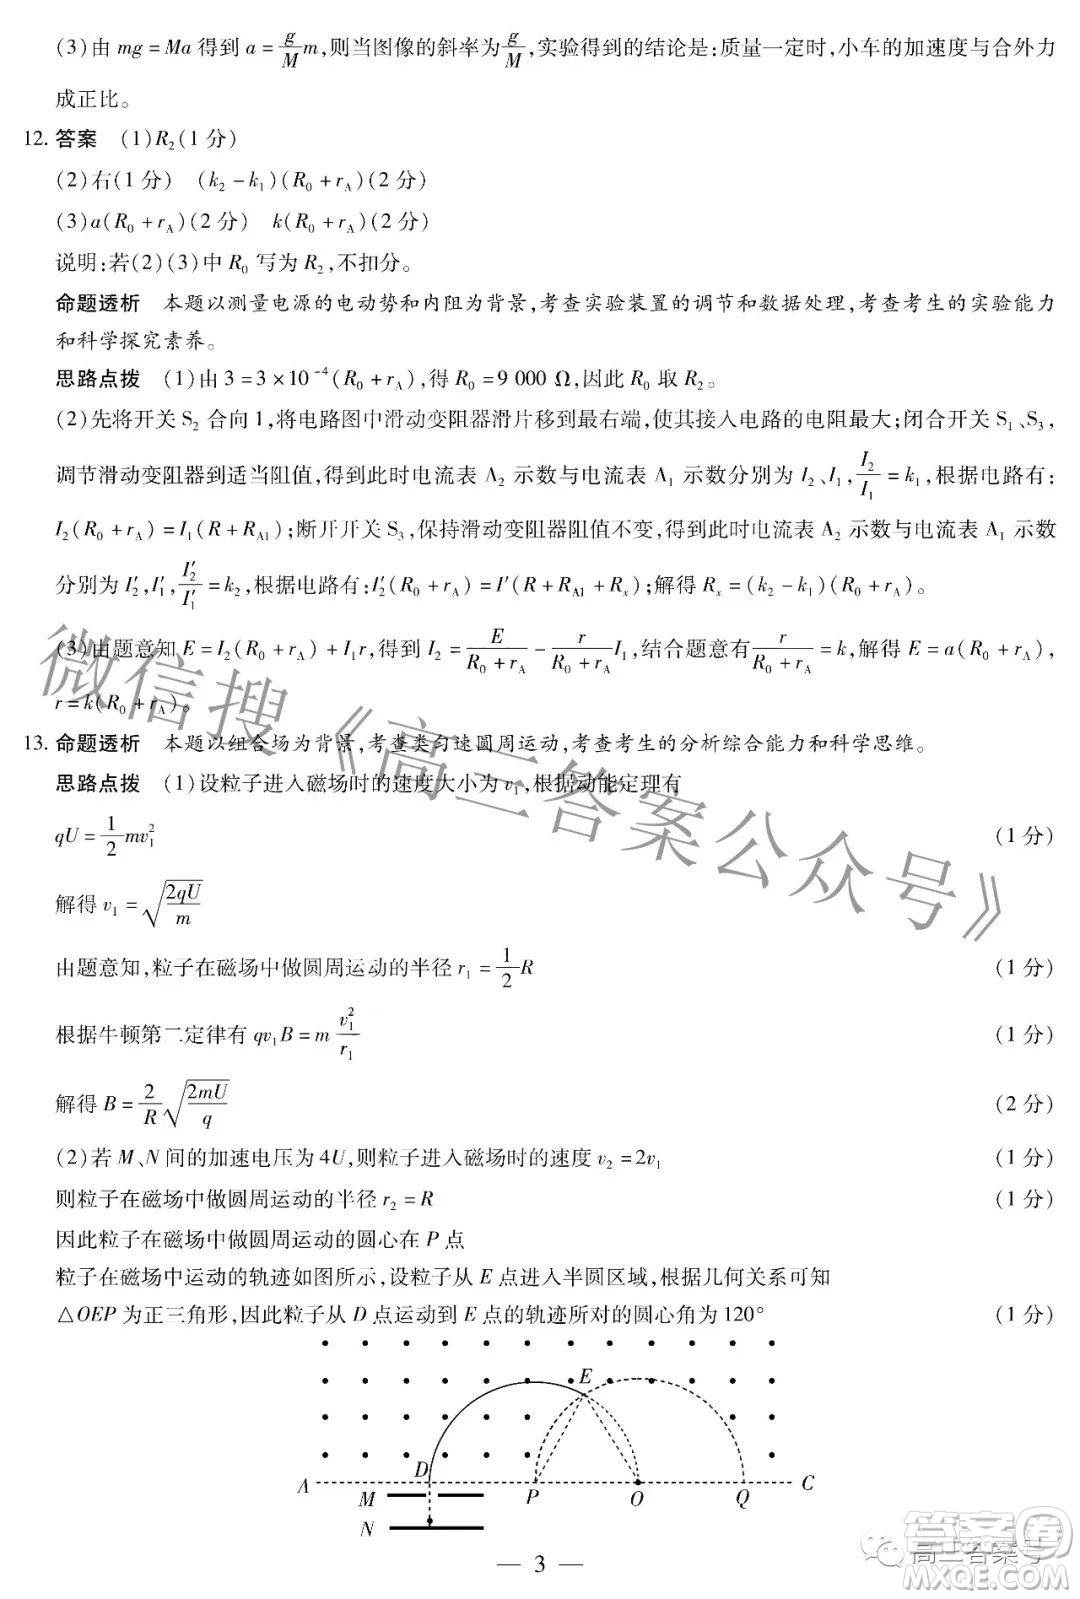 (3)由 mg = Ma 得到 a = g/M m,则当图像的斜率为 g/M,实验得到的结论是:质量一定时,小车的加速度与合外力
成正比。
12. 答案 (1)R₂(1 分)
(2)右(1 分) (k₂ - k₁)(R₀ + r_A)(2 分)
(3)a(R₀ + r_A)(2 分) k(R₀ + r_A)(2 分)
说明:若(2)(3)中 R₀ 写为 R₂,不扣分。
命题透析 本题以测量电源的电动势和内阻为背景,考查实验装置的调节和数据处理,考查考生的实验能力
和科学探究素养。
思路点拨 (1)由 3 = 3 × 10⁻⁴(R₀ + r_A),得 R₀ = 9 000 Ω,因此 R₀ 取 R₂。
(2)先将开关 S₂ 合向 1,将电路图中滑动变阻器滑片移到最右端,使其接入电路的电阻最大;闭合开关 S₁、S₃,
调节滑动变阻器到适当阻值,得到此时电流表 A₂ 示数与电流表 A₁ 示数分别为 I₂、I₁,I₂/I₁ = k₁,根据电路有:
I₂(R₀ + r_A) = I₁(R + R_A1);断开开关 S₃,保持滑动变阻器阻值不变,得到此时电流表 A₂ 示数与电流表 A₁ 示数
分别为 I′₂,I′₁,I′₂/I′₁ = k₂,根据电路有:I′₂(R₀ + r_A) = I′(R + R_A1 + R_x);解得 R_x = (k₂ - k₁)(R₀ + r_A)。
(3)由题意知 E = I₂(R₀ + r_A) + I₁r,得到 I₂ = E/(R₀ + r_A) - r/(R₀ + r_A) I₁,结合题意有 r/(R₀ + r_A) = k,解得 E = a(R₀ + r_A),
r = k(R₀ + r_A)。
13. 命题透析 本题以组合场为背景,考查类匀速圆周运动,考查考生的分析综合能力和科学思维。
思路点拨 (1)设粒子进入磁场时的速度大小为 v₁,根据动能定理有
qU = 1/2 mv₁² (1 分)
解得 v₁ = √(2qU/m)
由题意知,粒子在磁场中做圆周运动的半径 r₁ = 1/2 R (1 分)
根据牛顿第二定律有 qv₁B = m v₁²/r₁ (1 分)
解得 B = 2/R √(2mU/q) (2 分)
(2)若 M、N 间的加速电压为 4U,则粒子进入磁场时的速度 v₂ = 2v₁ (1 分)
则粒子在磁场中做圆周运动的半径 r₂ = R (1 分)
因此粒子在磁场中做圆周运动的圆心在 P 点
粒子在磁场中运动的轨迹如图所示,设粒子从 E 点进入半圆区域,根据几何关系可知
△OEP 为正三角形,因此粒子从 D 点运动到 E 点的轨迹所对的圆心角为 120° (1 分)
E
D
A
P
O
Q
C
M
N
— 3 —
微信搜《高三答案公众号》
高三答案号
答案圈
MXQE.COM